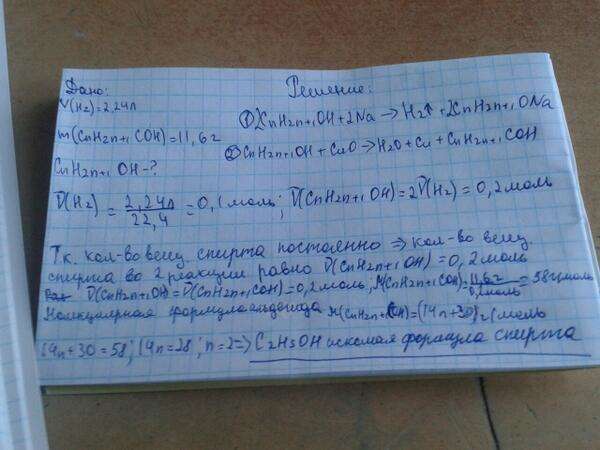 Дано:
V(H₂)=2,24л
m(CnH2n+1COH)=11,6г
CnH2n+1OH-?
Решение:
① 2CnH2n+1OH+2Na→H₂↑+2CnH2n+1ONa
② CnH2n+1OH+CuO→H₂O+Cu+CnH2n+1COH
ν(H₂)=2,24л/22,4=0,1моль; ν(CnH2n+1OH)=2ν(H₂)=0,2моль
Т.к. кол-во вещ. спирта постоянно ⇒ кол-во вещ.
спирта во 2 реакции равно ν(CnH2n+1OH)=0,2моль
ν(CnH2n+1OH)=ν(CnH2n+1COH)=0,2моль; M(CnH2n+1COH)=11,6г/0,2моль=58г/моль
формула альдегида M(CnH2n+1COH)=(14n+30)г/моль
14n+30=58; 14n=28; n=2⇒ C₂H₅OH искомая формула спирта